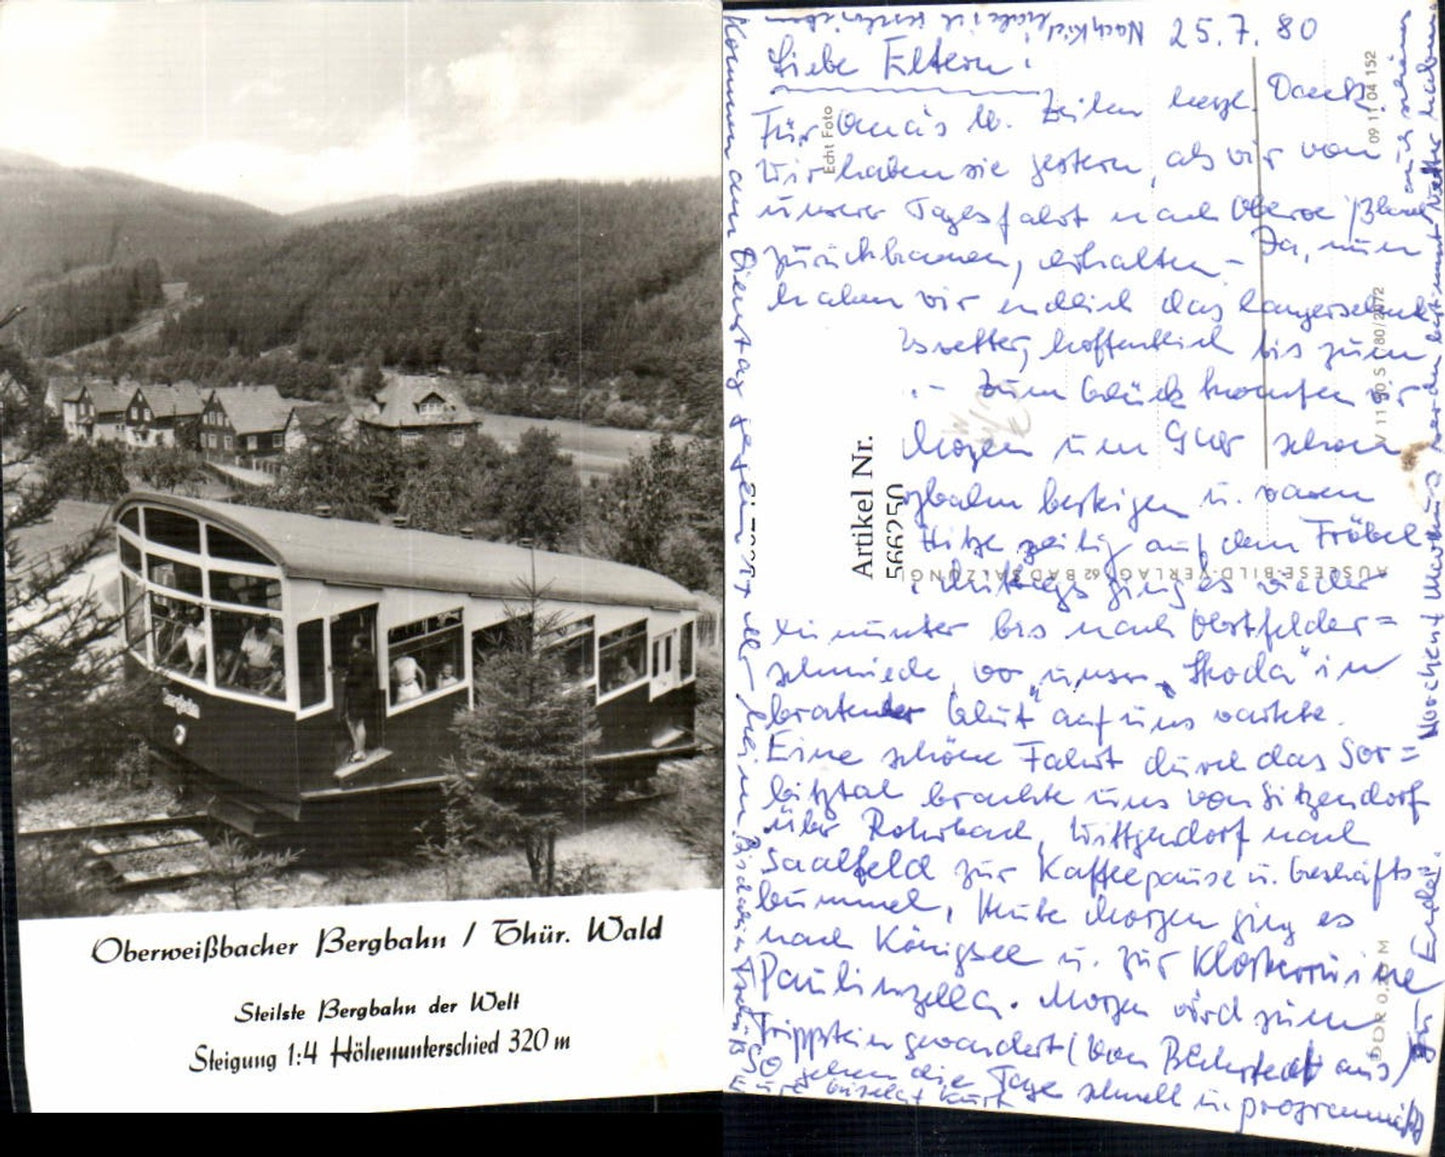 Bergbahn
Oberweißbacher Bergbahn / Thür. Wald
Steilste Bergbahn der Welt
Steigung 1:4 Höhenunterschied 320 m
Nach Kiel
25. 7. 80
Liebe Eltern!
Für Omas lb. Zeilen herzl. Dank.
Wir haben sie gestern, als wir von
unserer Tagesfahrt nach
zurückkamen, erhalten. – Ja, nun
haben wir endlich das langersehnte
wetter, hoffentlich bis zum
. – Zum Glück konnten wir
Morgen um 9 Uhr schon
gbahn besteigen u. waren
Hitze zeitig auf dem Fröbel
. Mittags ging es wieder
hinunter bis nach Obstfelder=
schmiede, wo unser „Skoda" in
bratender Glut auf uns wartete.
Eine schöne Fahrt durch das Sor=
bitztal brachte uns von Sitzendorf
über Rohrbach, Wittgendorf nach
Saalfeld zur Kaffeepause u. Geschäfts=
bummel. Heute Morgen ging es
nach Königsee u. zur Klosterruine
Paulinzella. Morgen wird zum
Trippstein gewandert (von Bechstedt aus)
So gehen die Tage schnell u. programmäß.
zu Ende.
Wochenend
werden bestimmt
auch schönes
Wetter haben
Kommen am Dienstag gegen
Uhr heim
Eure Giselat Kurt
Echt Foto
Artikel Nr.
566250
AUSLESE-BILD-VERLAG 62 BAD SALZUNGEN
09 11 04 152
V 11 50 S 1/80/2072
DDR 0,20 M